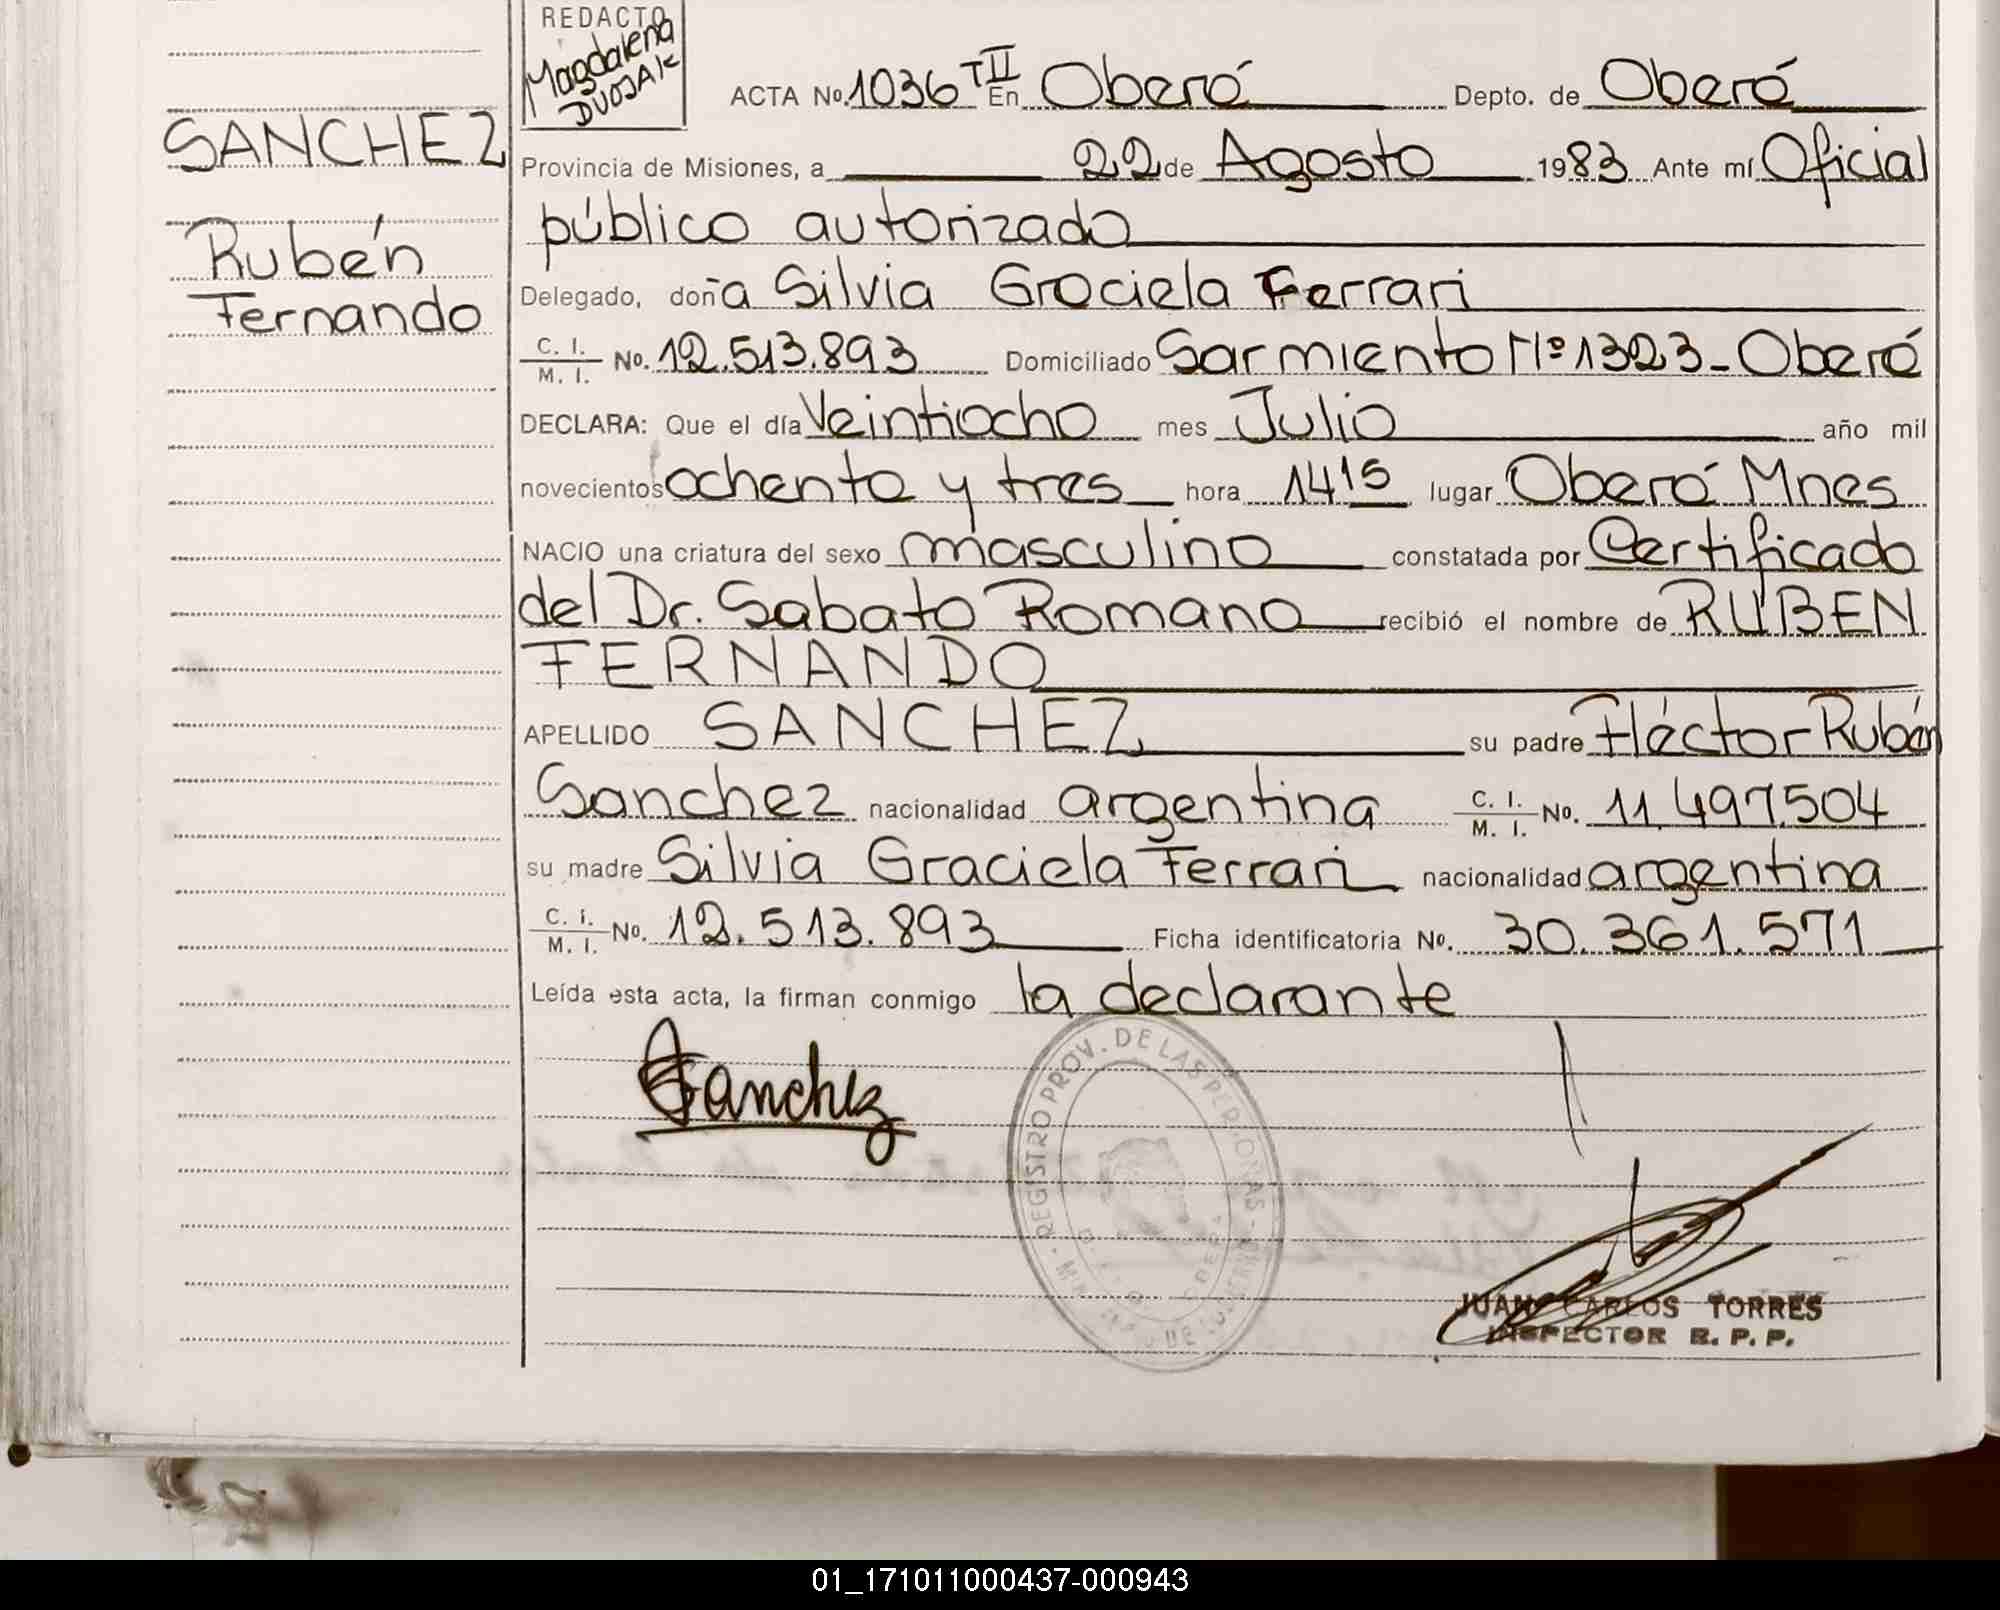 REDACTO
Magdalena
DVOJAK
SANCHEZ
Rubén
Fernando
ACTA No. 1036 TII En Oberá Depto. de Oberá
Provincia de Misiones, a 22 de Agosto 1983 Ante mí Oficial
público autorizado
Delegado, doña Silvia Graciela Ferrari
C. I. / M. I. No. 12.513.893 Domiciliado Sarmiento Nº 1323 - Oberá
DECLARA: Que el día Veintiocho mes Julio año mil
novecientos ochenta y tres hora 14 15 lugar Oberá Mnes
NACIO una criatura del sexo masculino constatada por Certificado
del Dr. Sabato Romano recibió el nombre de RUBEN
FERNANDO
APELLIDO SANCHEZ su padre Héctor Rubén
Sanchez nacionalidad argentina C. I. / M. I. No. 11.497.504
su madre Silvia Graciela Ferrari nacionalidad argentina
C. I. / M. I. No. 12.513.893 Ficha identificatoria No. 30.361.571
Leída esta acta, la firman conmigo la declarante
Sanchez
REGISTRO PROV. DE LAS PERSONAS
JUAN CARLOS TORRES
INSPECTOR R. P. P.
01_171011000437-000943